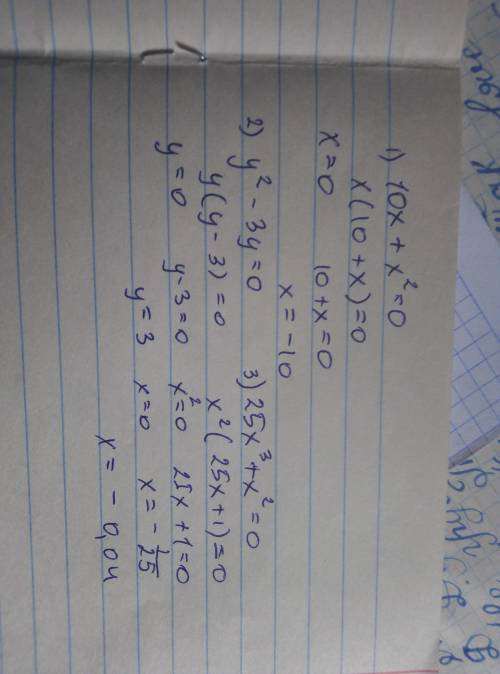 1) 10x + x² = 0
x(10 + x) = 0
x = 0 10 + x = 0
x = -10
2) y² - 3y = 0
y(y - 3) = 0
y = 0 y - 3 = 0
y = 3
3) 25x³ + x² = 0
x²(25x + 1) = 0
x² = 0 25x + 1 = 0
x = 0 x = - 1/25
x = - 0,04